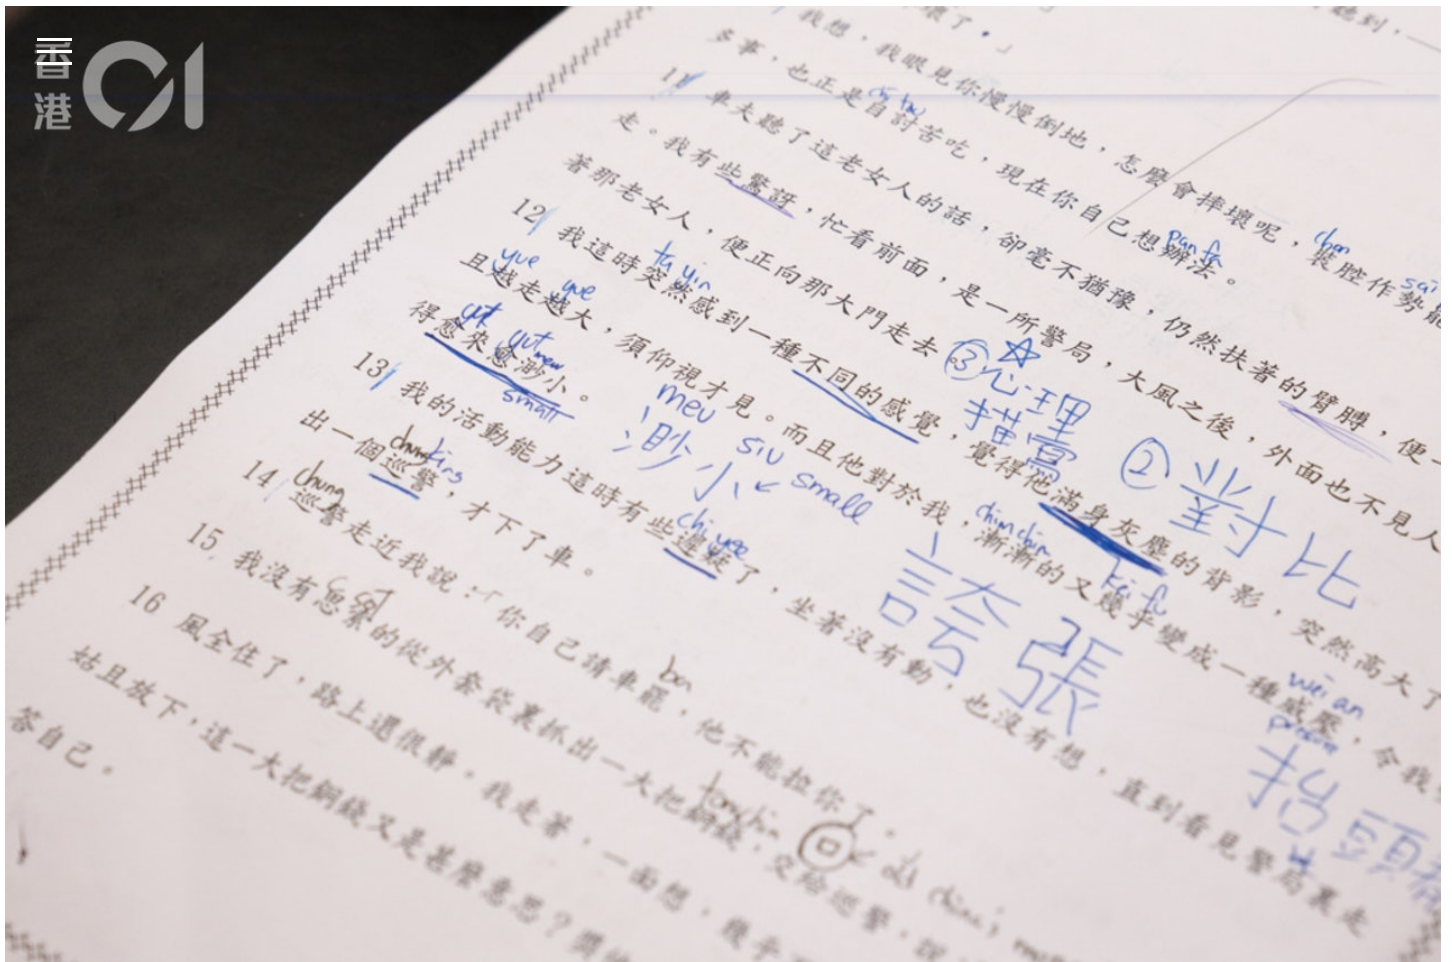 香港01
壞了。」
聽到，
我想，我眼見你慢慢倒地，怎麼會摔壞呢，裝腔作勢
多事，也正是自討苦吃，現在你自己想辦法。
11 車夫聽了這老女人的話，卻毫不猶豫，仍然扶著的臂膊，便
走。我有些驚訝，忙看前面，是一所警局，大風之後，外面也不見人
著那老女人，便正向那大門走去。
12 我這時突然感到一種不同的感覺，覺得他滿身灰塵的背影，突然高大了
且越走越大，須仰視才見。而且他對於我，漸漸的又幾乎變成一種威壓，令我
得愈來愈渺小。
13 我的活動能力這時有些遲疑了，坐著沒有動，也沒有想，直到看見警局裏走
出一個巡警，才下了車。
14 巡警走近我說：「你自己請車罷，他不能拉你了。
15 我沒有思索的從外套袋裏抓出一大把銅錢，交給巡警，說
16 風全住了，路上還很靜。我走著，一面想，幾乎
姑且放下，這一大把銅錢又是甚麼意思？
答自己。
pan fa
chon
ta yin
yue
yue
yut
yut
mew
small
③ ☆ 心理
描寫
② 對比
meu siu small
渺小
chim chim
kei fu
chi yee
誇張
wei an
pressure
抬頭
chung king
chung
bon